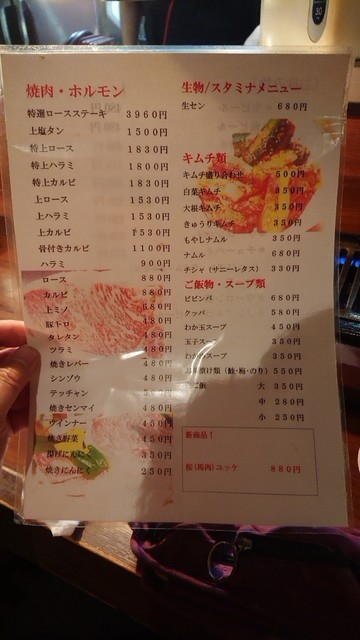 焼肉・ホルモン
特選ロースステーキ 3960円
上塩タン 1500円
特上ロース 1830円
特上ハラミ 1800円
特上カルビ 1830円
上ロース 1530円
上ハラミ 1530円
上カルビ 1530円
骨付きカルビ 1100円
ハラミ 900円
ロース 880円
カルビ 880円
上ミノ
豚トロ 480円
タレタン 480円
ツラミ 480円
焼きレバー 480円
シンゾウ 480円
テッチャン
焼きセンマイ 480円
ウインナー 450円
焼き野菜 450円
揚げにんにく 350円
焼きにんにく 250円
生物/スタミナメニュー
生セン 680円
キムチ類
キムチ盛り合わせ 500円
白菜キムチ 350円
大根キムチ 350円
きゅうりキムチ 350円
もやしナムル 350円
ナムル 680円
チシャ(サニーレタス) 330円
ご飯物・スープ類
ビビンバ 680円
クッパ 580円
わか玉スープ 450円
玉子スープ 350円
スープ 350円
漬け類(鮭・梅・のり) 550円
ご飯 大 350円
中 280円
小 250円
新商品!
桜(馬肉)ユッケ 880円